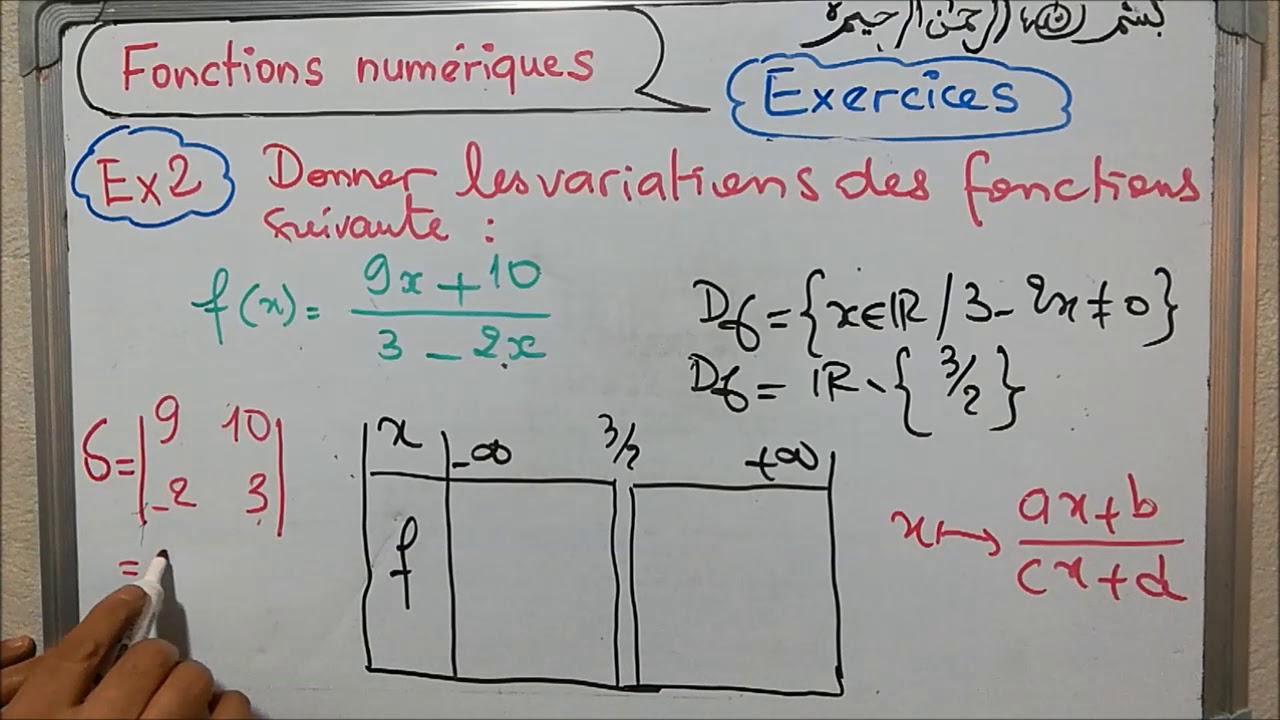 بسم الله الرحمن الرحيم
Fonctions numériques
Exercices
Ex2 Donner les variations des fonctions
suivante :
f(x) = (9x + 10) / (3 - 2x)
Df = {x ∈ IR / 3 - 2x ≠ 0}
Df = IR \ {3/2}
δ = |9 10|
|-2 3|
=
x -∞ 3/2 +∞
f
x ↦ (ax + b) / (cx + d)